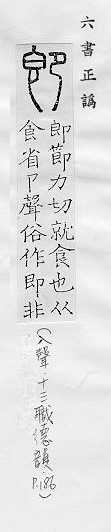 六書正譌
卽
卽節力切就食也从
食省卪聲俗作即非
(入聲·十三職德韻·P.186)